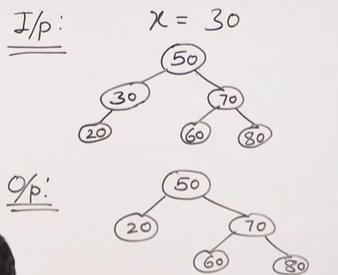 I/p: x = 30
50
30 70
20 60 80
O/p:
50
20 70
60 80